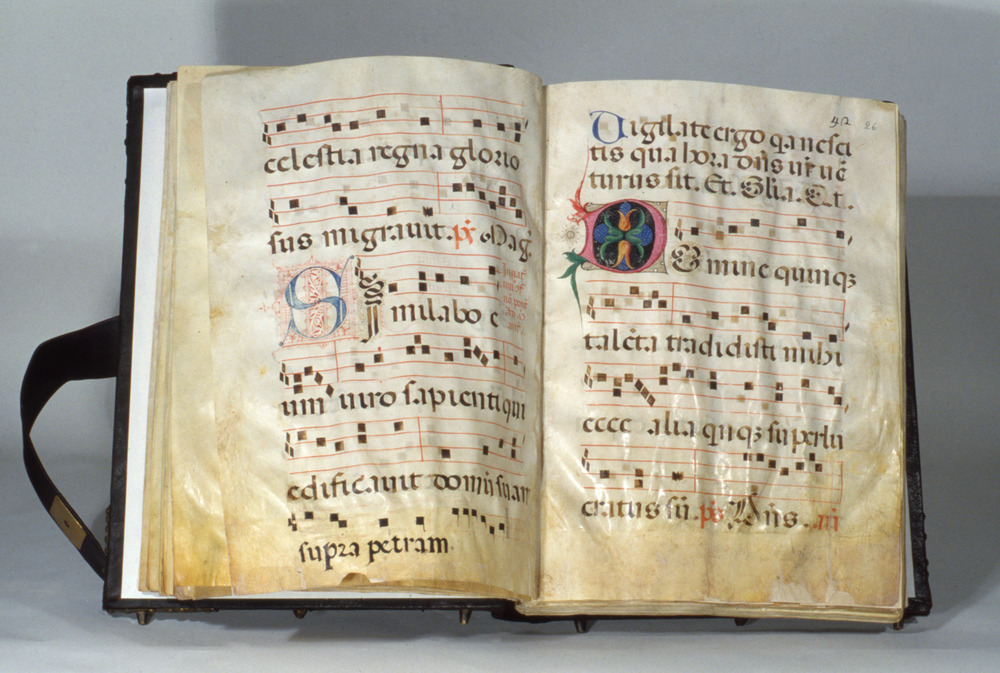 celestia regna glorio
sus migrauit. ps Mag.
Similabo e
um uiro sapienti qui
edificauit domū suam
supra petram.
42 26
Uigilate ergo q̄a nesci
tis qua hora dn̄s ur̄ uē
turus sit. Et. Glīa. Et.
Domine quinqꝫ
talēta tradidisti mihi
ecce alia quīqꝫ superlu
cratus sū. ps Dn̄s.